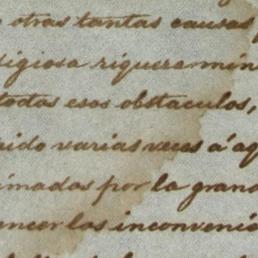 otras tantas causas
digiosa riqueza min
todos esos obstaculos,
uido varias veces á aq
imados por la grand
encer los inconvenie